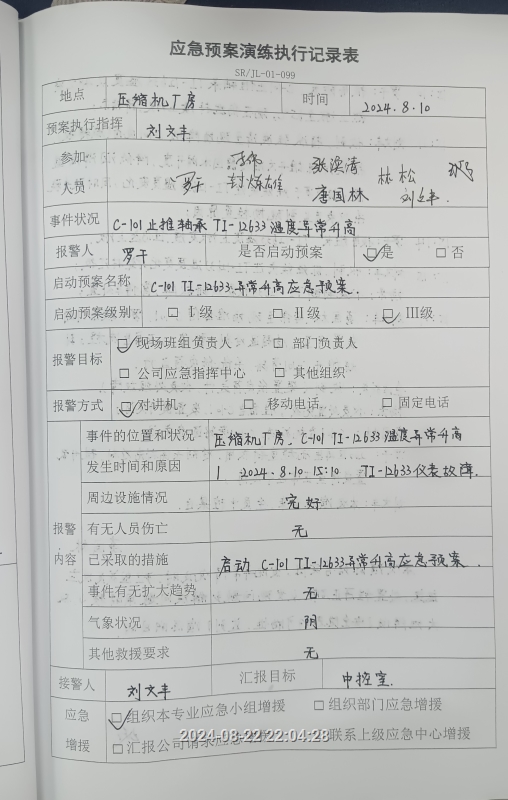 应急预案演练执行记录表
SR/JL-01-099
地点 压缩机厂房 时间 2024.8.10
预案执行指挥 刘文丰
参加人员 罗干 封炼雄 张溪涛 唐国林 林松 刘文丰
事件状况 C-101止推轴承 TI-12633温度异常升高
报警人 罗干 是否启动预案 ☑是 □否
启动预案名称 C-101 TI-12633异常升高应急预案.
启动预案级别 □ I级 □ II级 ☑ III级
报警目标 ☑现场班组负责人 □ 部门负责人
□ 公司应急指挥中心 □ 其他组织
报警方式 ☑对讲机 □ 移动电话 □ 固定电话
报警内容
事件的位置和状况 压缩机厂房, C-101 TI-12633温度异常升高
发生时间和原因 1 2024.8.10 15:10 TI-12633仪表故障.
周边设施情况 完好
有无人员伤亡 无
已采取的措施 启动 C-101 TI-12633异常升高应急预案.
事件有无扩大趋势 无
气象状况 阴
其他救援要求 无
接警人 刘文丰 汇报目标 中控室.
应急增援 ☑组织本专业应急小组增援 □组织部门应急增援
□汇报公司请求应急 联系上级应急中心增援
2024-08-22 22:04:28